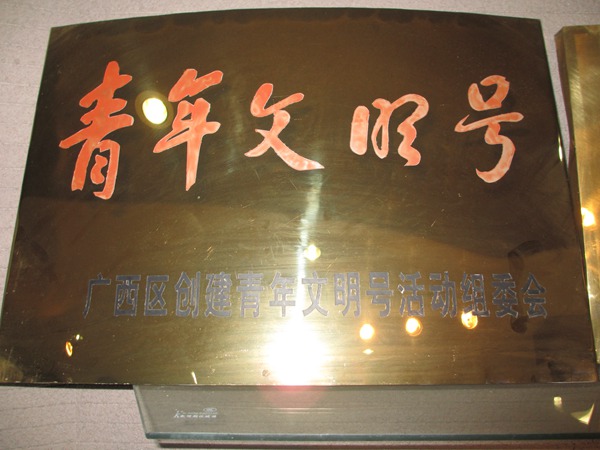 青年文明号
广西区创建青年文明号活动组委会